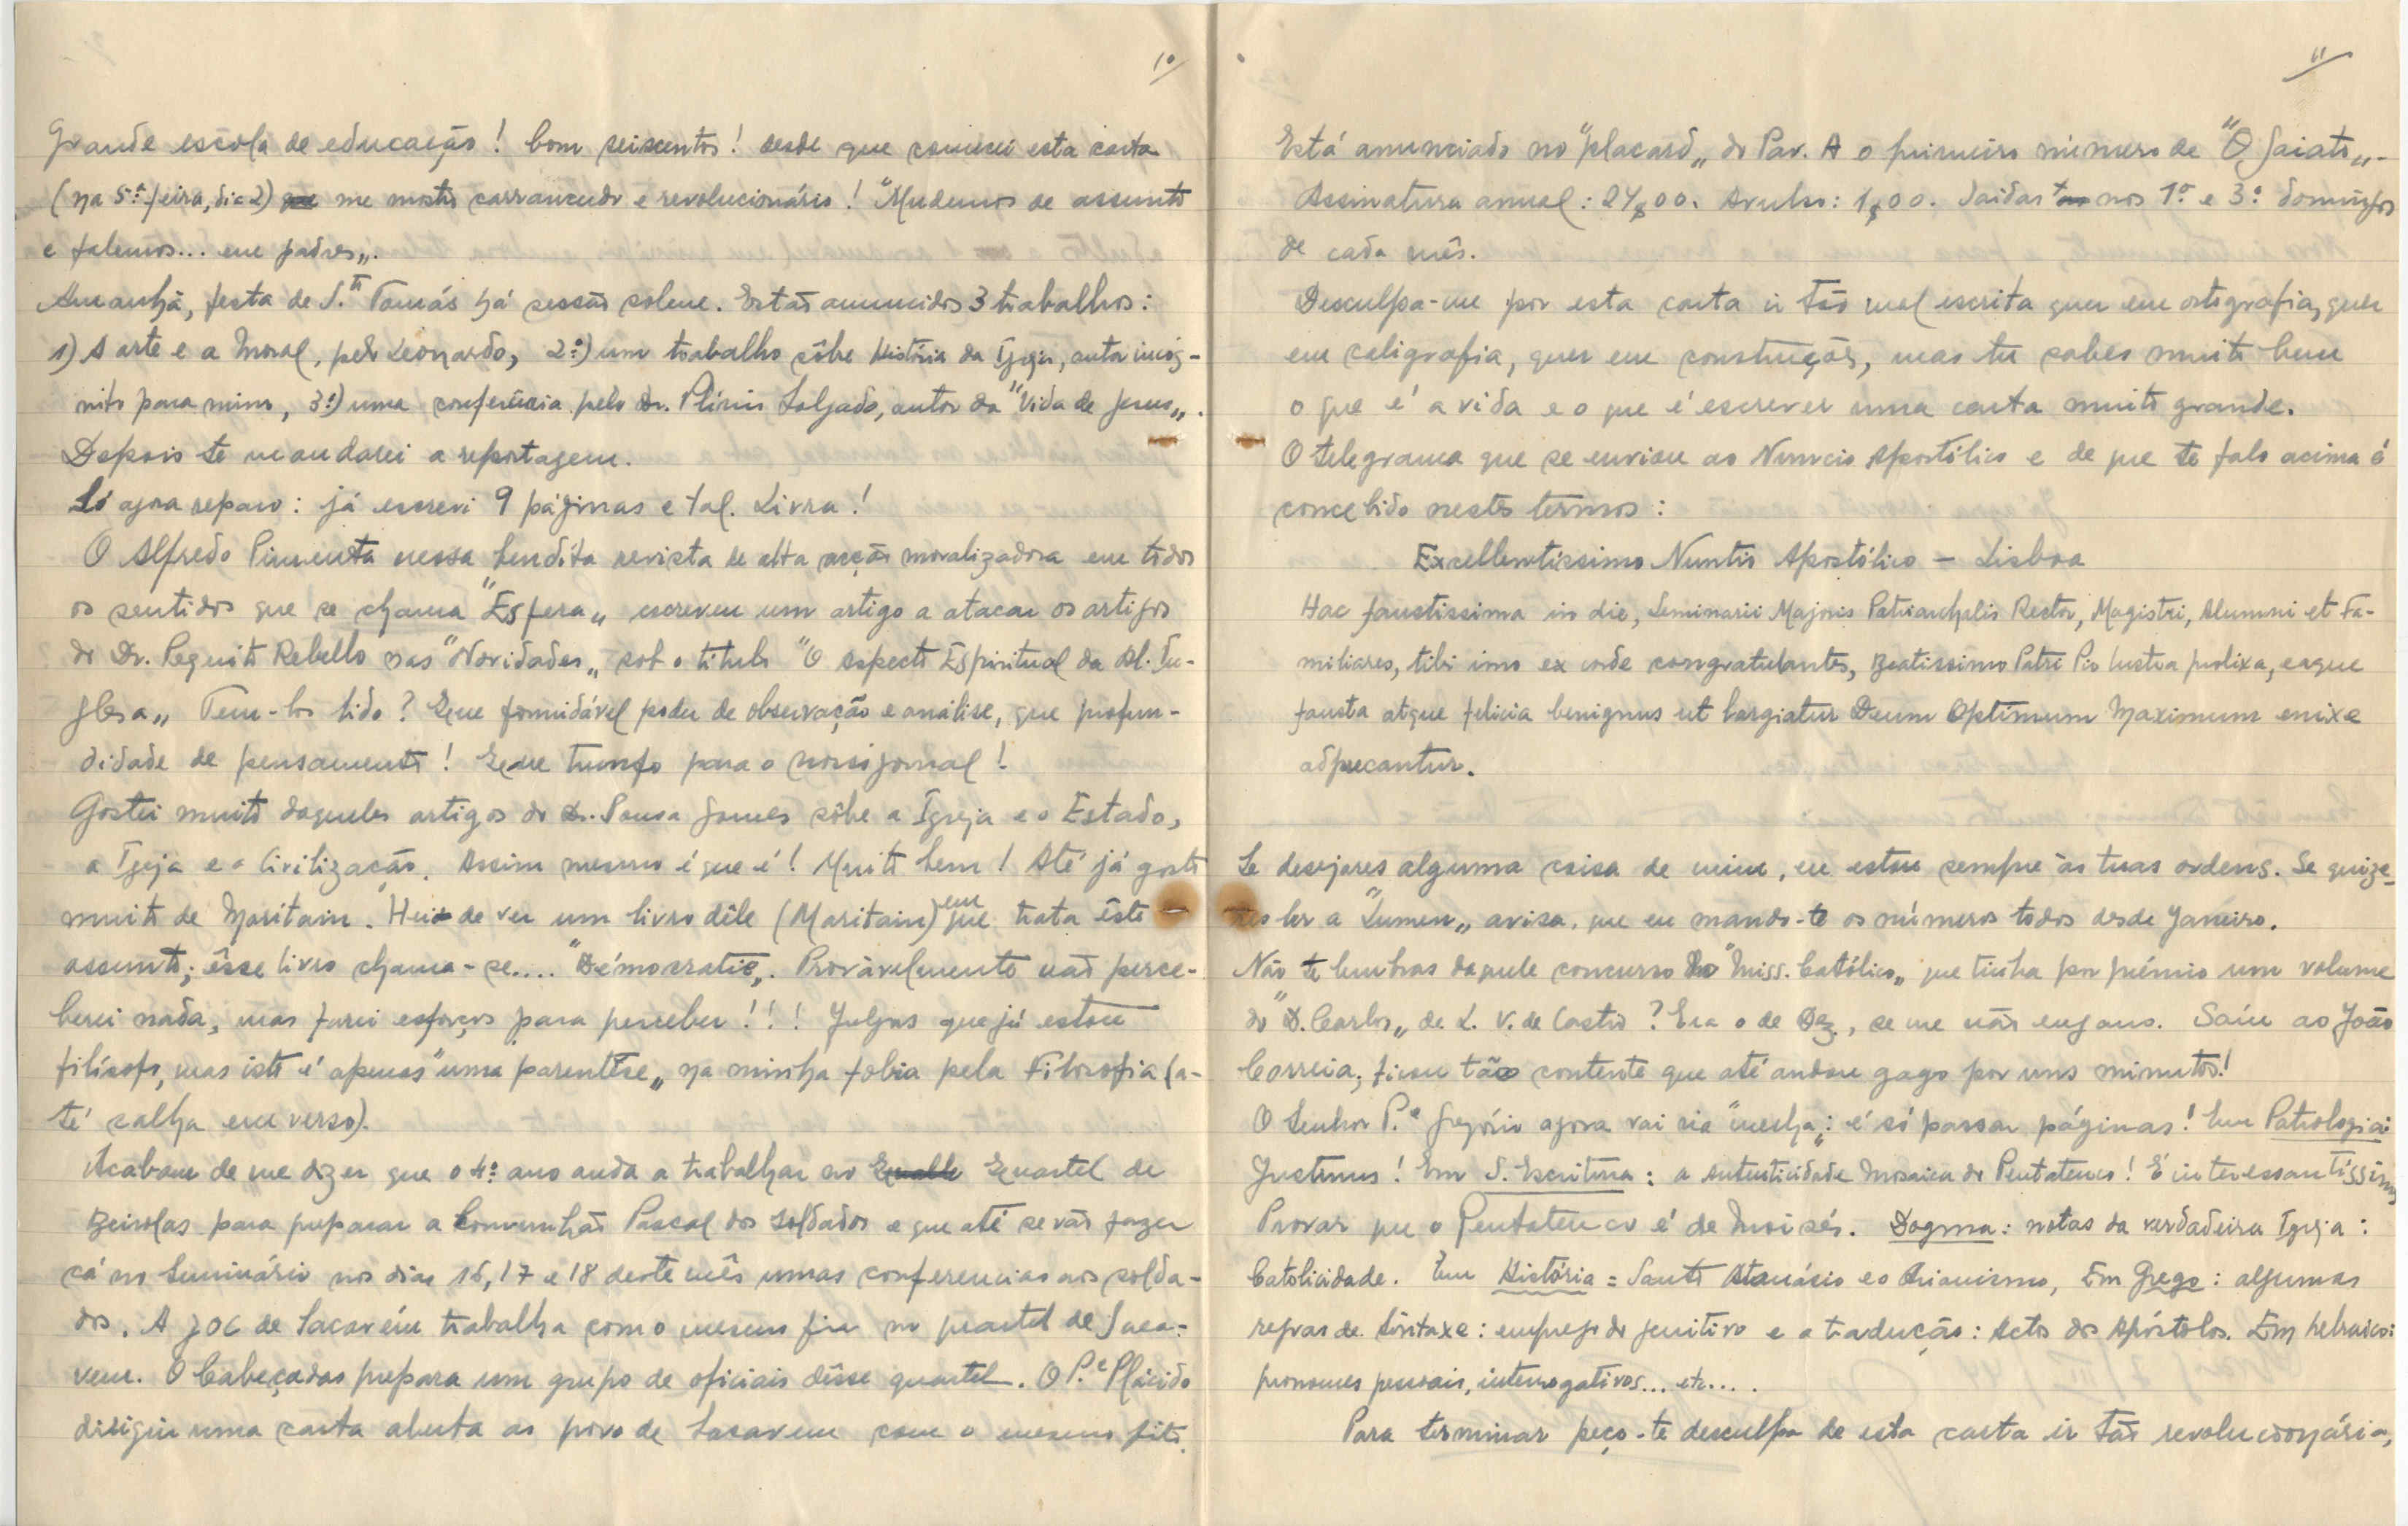 10
Grande escola de educação! Com seiscentos! desde que comecei esta carta
(na 5ª feira, dia 2) que me mostro carrancudo e revolucionário! "Mudemos de assunto
e falemos... em padres".
Amanhã, festa de S.to Tomás há sessão solene. Estão anunciados 3 trabalhos:
1) A arte e a Moral, pelo Leonardo, 2º) um trabalho sôbre História da Igreja, autor incóg-
nito para mim, 3º) uma conferência pelo Dr. Plínio Salgado, autor da "Vida de Jesus".
Depois te mandarei a reportagem.
Só agora reparo: já escrevi 9 páginas e tal. Livra!
O Alfredo Pimenta nessa bendita revista de alta acção moralizadora em todos
os sentidos que se chama "Esfera" escreveu um artigo a atacar os artigos
do Dr. Pequito Rebello nas "Novidades" sob o título "O aspecto Espiritual da Al. In-
glesa" Tem-los lido? Que formidável poder de observação e análise, que profun-
didade de pensamento! Que trunfo para o nosso jornal!
Gostei muito daqueles artigos do Dr. Sousa Gomes sôbre a Igreja e o Estado,
a Igreja e a Civilização. Assim mesmo é que é! Muito bem! Até já gosto
muito de Maritain. Hei de ver um livro dêle (Maritain) em que trata êste
assunto; êsse livro chama-se.... "Démocratie". Provàvelmente não perce-
berei nada, mas farei esforços para perceber!!! Julgas que já estou
filósofo, mas isto é apenas "uma parentêse" na minha fobia pela Filosofia (a-
té calha em verso).
Acabam de me dizer que o 4º ano anda a trabalhar no Quartel de
Beirolas para preparar a Comunhão Pascal dos soldados e que até se vão fazer
cá no Seminário nos dias 16, 17 e 18 dêste mês umas conferencias aos solda-
dos. A JOC de Sacavém trabalha com o mesmo fim no quartel de Saca-
vem. O Cabeçadas prepara um grupo de oficiais dêsse quartel. O P.e Plácido
dirigiu uma carta aberta ao povo de Sacavem com o mesmo fito.
11
Está anunciado no "placard" do Pav. A o primeiro número de "O Gaiato".-
Assinatura anual: 24$00. Avulso: 1$00. Saídas nos 1º e 3º domingos
de cada mês.
Desculpa-me por esta carta ir tão mal escrita quer em ortografia, quer
em caligrafia, quer em construção, mas tu sabes muito bem
o que é a vida e o que é escrever uma carta muito grande.
O telegrama que se enviou ao Nuncio Apostólico e de que te falo acima é
concebido nestes termos:
Excellentissimo Nuntio Apostólico - Lisboa
Hac faustissima in die, Seminarii Majoris Patriarchalis Rector, Magistri, Alumni et Fa-
miliares, tibi imo ex corde congratulantes, Beatissimo Patri Pio lustra prolixa, eaque
fausta atque felicia benignus ut largiatur Deum Optimum Maximum enixe
adprecantur.
Se desejares alguma coisa de mim, eu estou sempre às tuas ordens. Se quize-
res ler a "Lumen" avisa, que eu mando-te os números todos desde Janeiro.
Não te lembras daquele concurso do "Miss. Católico" que tinha por prémio um volume
do "D. Carlos" de L. V. de Castro? Era o de Dez, se me não engano. Saíu ao João
Correia; ficou tão contente que até andou gago por uns minutos!
O Senhor P.e Gregório agora vai na "mecha": é só passar páginas! Em Patrologia:
Justinus! Em S. Escritura: a autenticidade Mosaica do Pentateuco! É interessantíssimo
Provar que o Pentateuco é de Moisés. Dogma: notas da verdadeira Igreja:
Catolicidade. Em História = Santo Atanásio e o Arianismo, Em Grego: algumas
regras de Sintaxe: emprego do genitivo e a tradução: Actos dos Apóstolos. Em hebraico:
pronomes pessoais, interrogativos... etc....
Para terminar peço-te desculpa de esta carta ir tão revolucionária,